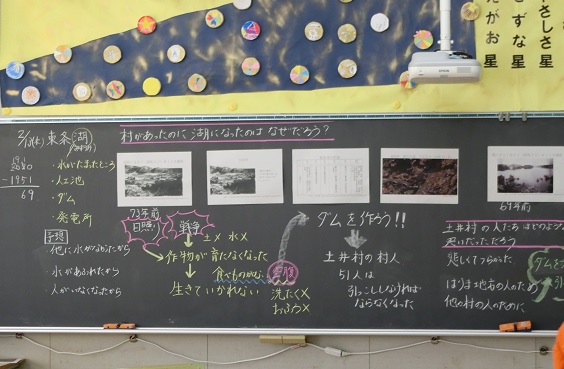 やさしさ星
きずな星
がお星
2/13(木) 東条湖
村があったのに湖になったのはなぜだろう?
2020
-1951
69
・水がたまたところ
・人工池
・ダム
・発電所
予想
・他に水がなかったから
・水があふれたから
・人がいなくなったから
73年前
日照り
戦争
土× 水×
作物が育たなくなった
食べものがない
生きていかれない
空腹
洗たく×
おふろ×
ダムを作ろう!!
土井村の村人
51人は
引っこししなければ
ならなくなった
69年前
土井村の人たちはどのような
思いだっただろう
悲しくてつらかった
はりま地方の人のため
他の村の人のために
ダムを
引